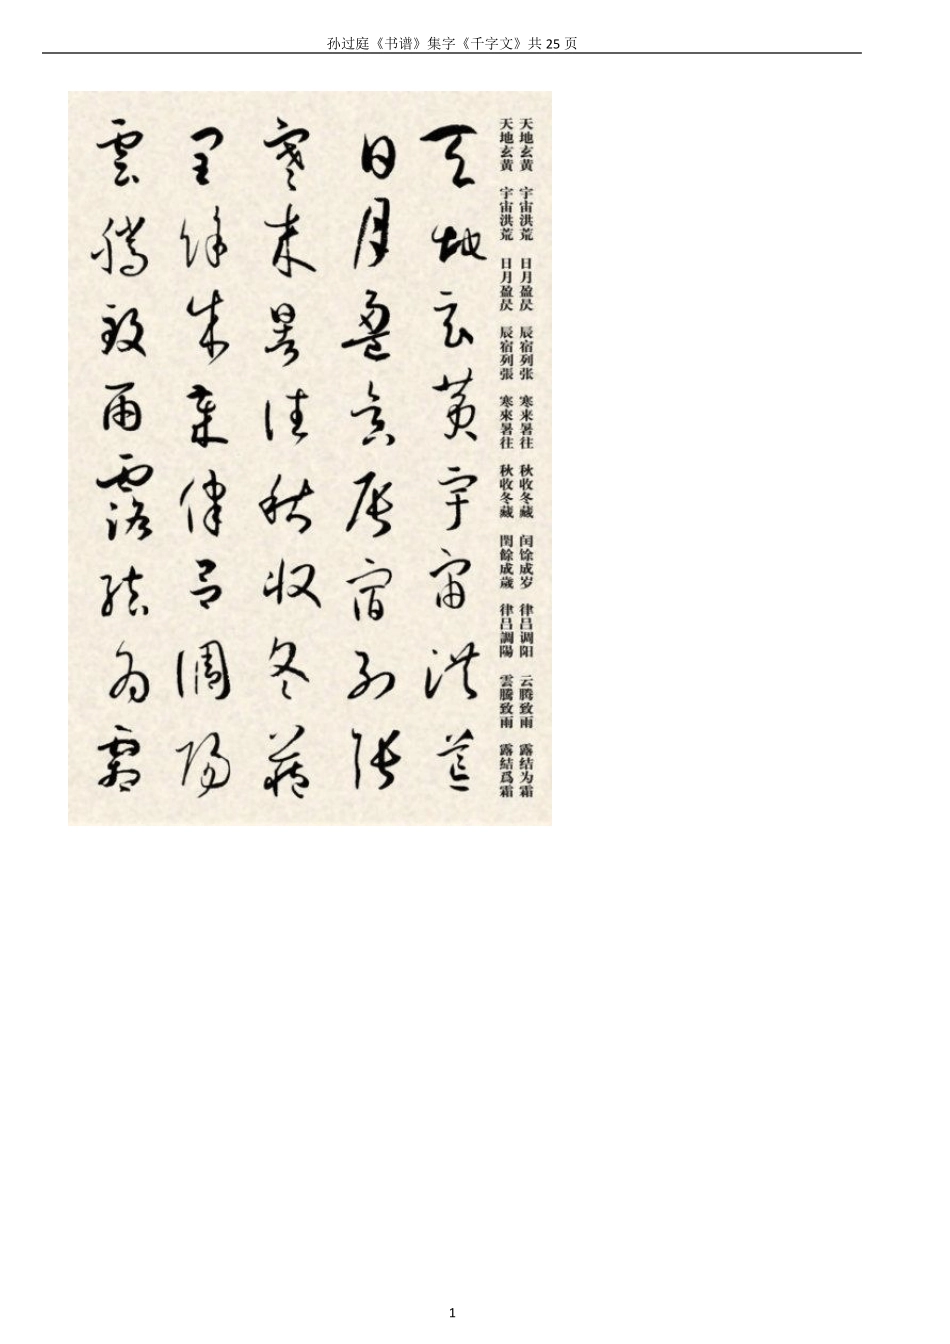 孙过庭《书谱》集字《千字文》共 25 页
天地玄黄 宇宙洪荒 日月盈昃 辰宿列张 寒来暑往 秋收冬藏 闰馀成岁 律吕调阳 云腾致雨 露结为霜
天地玄黄 宇宙洪荒 日月盈昃 辰宿列張 寒來暑往 秋收冬藏 閏餘成歲 律吕調陽 雲騰致雨 露結爲霜
天地玄黄宇宙洪荒
日月盈昃辰宿列張
寒来暑往秋收冬藏
閏餘成歲律吕調陽
雲騰致雨露結為霜
1